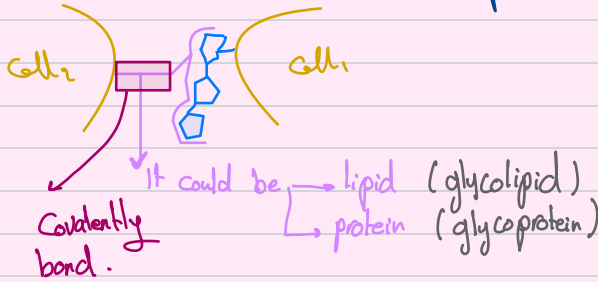 Cell₂
Cell₁
It could be → lipid (glycolipid)
→ protein (glycoprotein)
Covalently
bond.